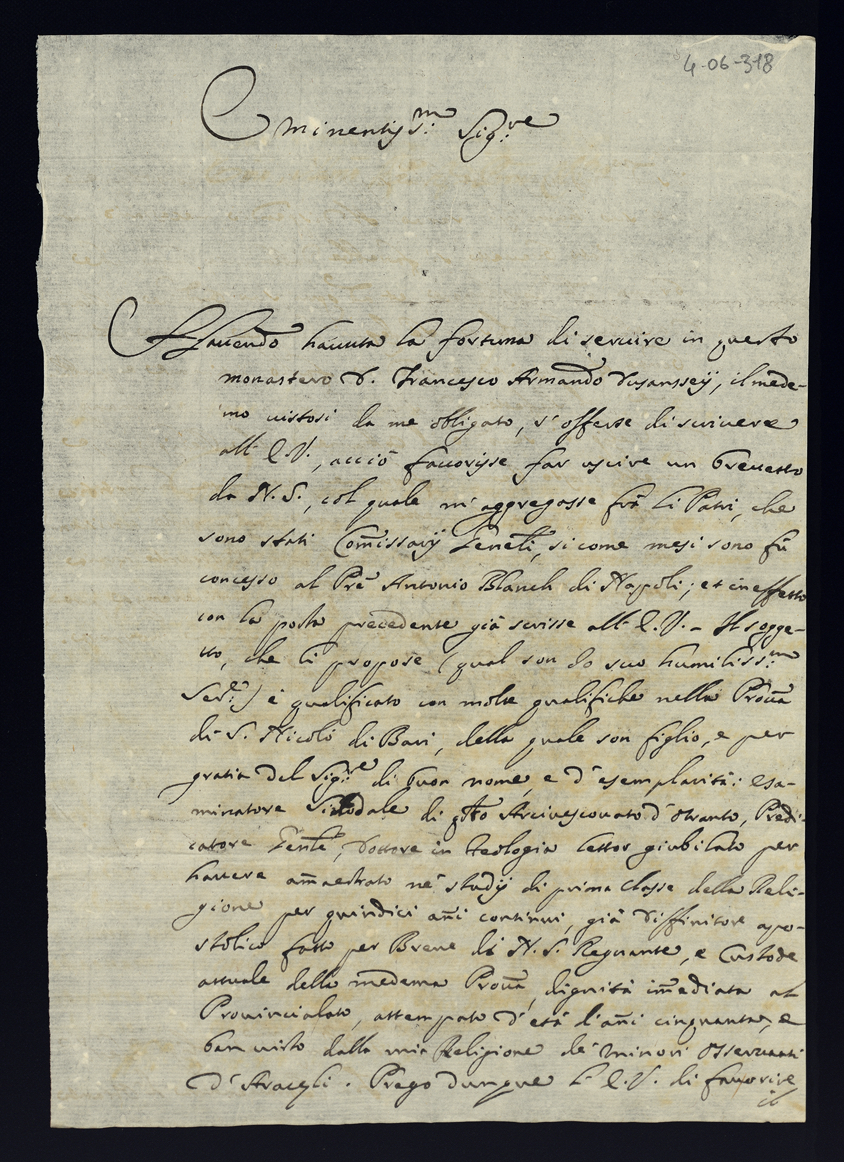 4-06-318
Eminentiss:mo Sig:re
Havendo havuta la fortuna di servire in questo
monastero D. Francesco Armando Dusanssey, il mede-
mo vistosi da me obligato, s'offerse di scrivere
all' E.V., acciò favorisse far uscire un brevetto
da N. S., col quale m'aggregasse frà li Patri, che
sono stati Comissarij Genēli, si come mesi sono fù
concesso al Prē Antonio Blanch di Napoli; et in effetto
con la posta precedente già scrisse all' E.V. - Il sogge-
tto, che li propose (qual son io suo humiliss:mo
Ser:e) è qualificato con molte qualifiche nella Provā
di S. Nicolò di Bari, della quale son figlio, e per
gratia del Sig:re di buon nome, e d'esemplarità: esa-
minatore Sinodale di qsto Arcivescovato d'Otranto, Predi-
catore Genle, Dottore in Teologia lettor giubilato per
havere amaestrato ne' studij di prima classe della Reli-
gione per quindici añi continui, già Diffinitore apo-
stolico fatto per Breve di N. S. Regnante, e Custode
attuale della medema Provā, dignità imediata al
Provincialato, attempato d'età d'añi cinquanta, e
ben visto dalla mia Religione de' Minori Osservanti
d'Aracęli. Prego dunque l' E.V. di favorire